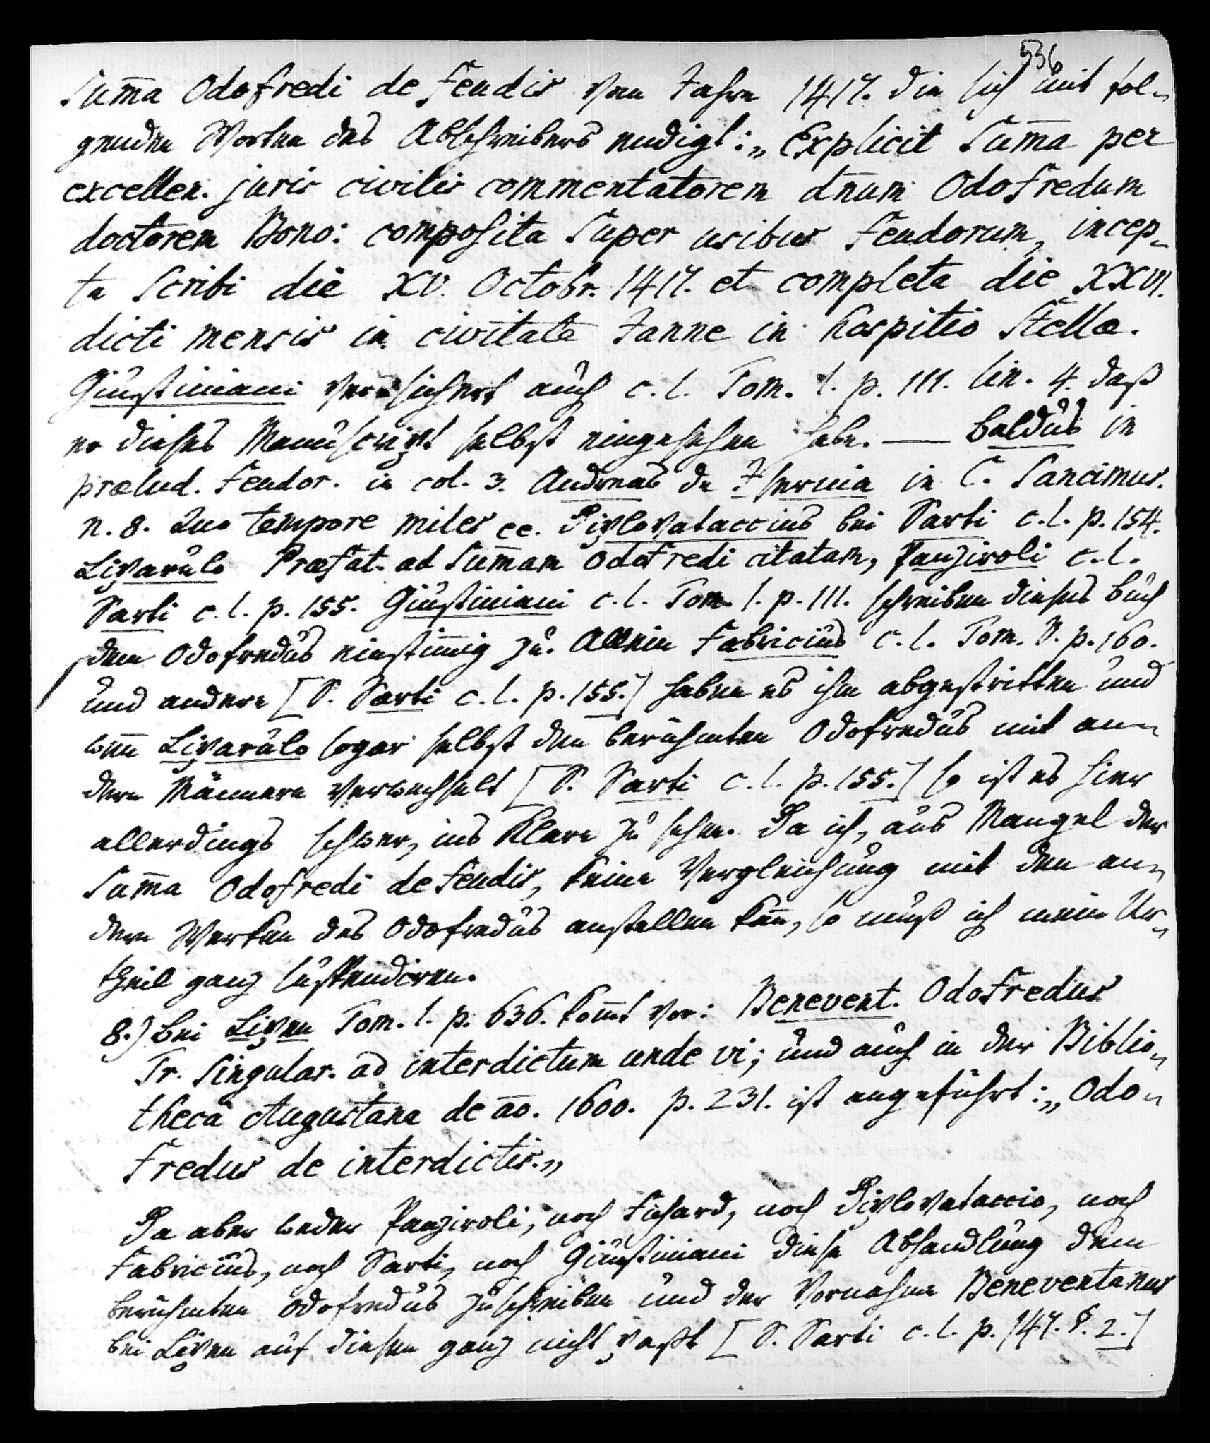 536
Suma Odofredi de Feudis vom Jahre 1417. die sich mit fol-
genden Worten des Abschreibers endigt: „Explicit Suma per
excellen. juris civilis commentatorem dnum Odofredum
doctorem Bono: composita super usibus Feudorum, incep-
ta scribi die XV. Octobr. 1417. et completa die XXVI.
dicti mensis in civitate Janne in hospitio Stellæ.
Giustiniani versichert auch c. l. Tom. 1. p. 111. lin. 4. daß
er dieses Manuscript selbst eingesehen habe. — Baldus in
prælud. Feudor. in col. 3. Andreas de Isernia in C. Sancimus.
n. 8. Quo tempore miles cc. Diplovataccius bei Sarti c. l. p. 154.
Liparulo Præfat. ad Sumam Odofredi citatam, Panziroli c. l.
Sarti c. l. p. 155. Giustiniani c. l. Tom. 1. p. 111. schreiben dieses Buch
dem Odofredus einstimig zu. Allein Fabricius c. l. Tom. V. p. 160.
und andere [S. Sarti c. l. p. 155.] haben es ihm abgestritten und
wen Liparulo sogar selbst den berühmten Odofredus mit an-
dern Männern verwechselt [S. Sarti c. l. p. 155.] so ist es hier
allerdings schwer, ins Klare zu sehen. Da ich, aus Mangel der
Suma Odofredi de Feudis, keine Vergleichung mit den an-
dern Werken des Odofredus anstellen kan, so muß ich mein Ur-
theil ganz suspendiren.
8.) Bei Lipen Tom. 1. p. 636. komt vor: Benevent. Odofredus
Tr. singular. ad interdictum unde vi; und auch in der Biblio-
theca Augustana de ao. 1600. p. 231. ist angeführt: „Odo-
fredus de interdictis.„
Da aber weder Panziroli, noch Fichard, noch Diplovataccio, noch
Fabricius, noch Sarti, noch Giustiniani diese Abhandlung dem
berühmten Odofredus zuschreiben und der Vornahme Beneventanus
bei Lipen auf diesen ganz nicht paßt [S. Sarti c. l. p. 147. §. 2.]